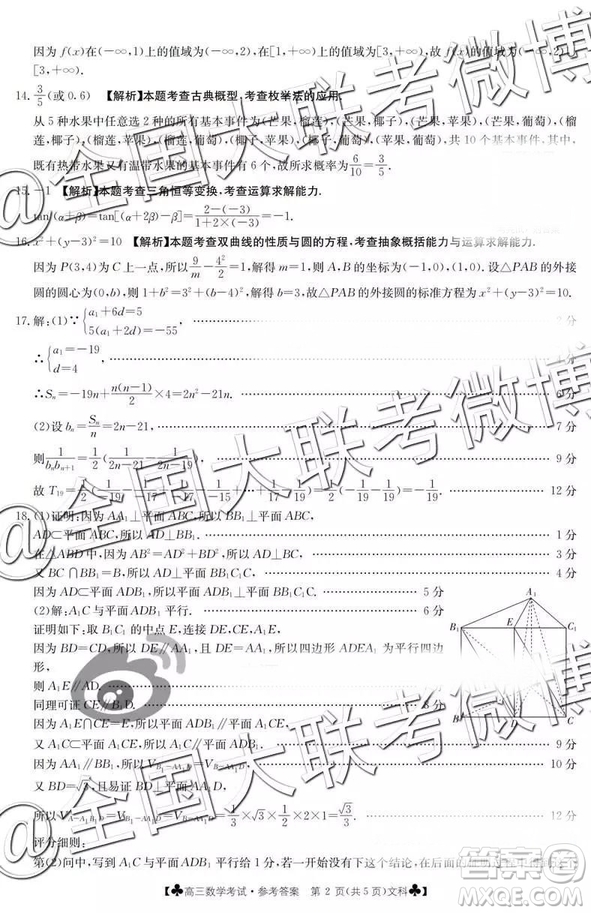 因为 f(x)在(-∞,1)上的值域为(-∞,2),在[1,+∞)上的值域为[3,+∞),故 f(x)的值域为(-∞,2)∪
[3,+∞).
14. 3/5(或 0.6) 【解析】本题考查古典概型,考查枚举法的应用.
从 5 种水果中任意选 2 种的所有可能为(芒果,榴莲),(芒果,椰子),(芒果,苹果),(芒果,葡萄),(榴
莲,椰子),(榴莲,苹果),(榴莲,葡萄),(椰子,苹果),(椰子,葡萄),(苹果,葡萄),共 10 个基本事件,其中,
既有热带水果又有温带水果的基本事件有 6 个,故所求概率为 6/10=3/5.
15. -1 【解析】本题考查三角恒等变换,考查运算求解能力.
tan(α+β)=tan[(α+2β)-β]=(2-(-3))/(1+2×(-3))=-1.
16. x²+(y-3)²=10 【解析】本题考查双曲线的性质与圆的方程,考查抽象概括能力与运算求解能力.
因为 P(3,4)为 C 上一点,所以 9/m-4²/2=1,解得 m=1,则 A,B 的坐标为(-1,0),(1,0).设△PAB 的外接
圆的圆心为(0,b),则 1+b²=3²+(b-4)²,解得 b=3,故△PAB 的外接圆的标准方程为 x²+(y-3)²=10.
17. 解:(1)∵{a₁+6d=5 5(a₁+2d)=-55, 2 分
∴{a₁=-19 d=4. 4 分
∴Sₙ=-19n+n(n-1)/2×4=2n²-21n. 6 分
(2)设 bₙ=Sₙ/n=2n-21, 7 分
则 1/(bₙbₙ₊₁)=1/2(1/(2n-21)-1/(2n-19)), 9 分
故 T₁₉=1/2(-1/19-1/17+…+1/17-1/19)=1/2(-1/19-1/19)=-1/19. 12 分
18. (1)证明:因为 AA₁⊥平面 ABC,所以 BB₁⊥平面 ABC,
AD⊂平面 ABC,所以 AD⊥BB₁. 1 分
在△ABD 中,因为 AB²=AD²+BD²,所以 AD⊥BC, 3 分
又 BC∩BB₁=B,所以 AD⊥平面 BB₁C₁C. 4 分
因为 AD⊂平面 ADB₁,所以平面 ADB₁⊥平面 BB₁C₁C. 5 分
(2)解:A₁C 与平面 ADB₁ 平行. 6 分
证明如下:取 B₁C₁ 的中点 E,连接 DE,CE,A₁E,
因为 BB₁∥DE∥AA₁,且 BB₁=DE=AA₁,所以四边形 ADEA₁ 为平行四边形,
则 A₁E∥AD.
同理可证 CE∥B₁D. 8 分
因为 A₁E∩CE=E,所以平面 ADB₁∥平面 A₁CE,
又 A₁C⊂平面 A₁CE,所以 A₁C∥平面 ADB₁. 9 分
因为 AA₁∥BB₁,所以
又 BD=√3,且易证 BD⊥平面 AA₁D,
所以 =1/3×√3×1/2×2×1=√3/3. 12 分
评分细则:
第(2)问中,写到 A₁C 与平面 ADB₁ 平行给 1 分,若开始没有写到这个结论,在后面的
A₁
B₁
C₁
B
C
♣高三数学考试·参考答案 第 2 页(共 5 页)文科♣
@全国大联考微博
@全国大联考微博
@全国大联考微博
答案圈